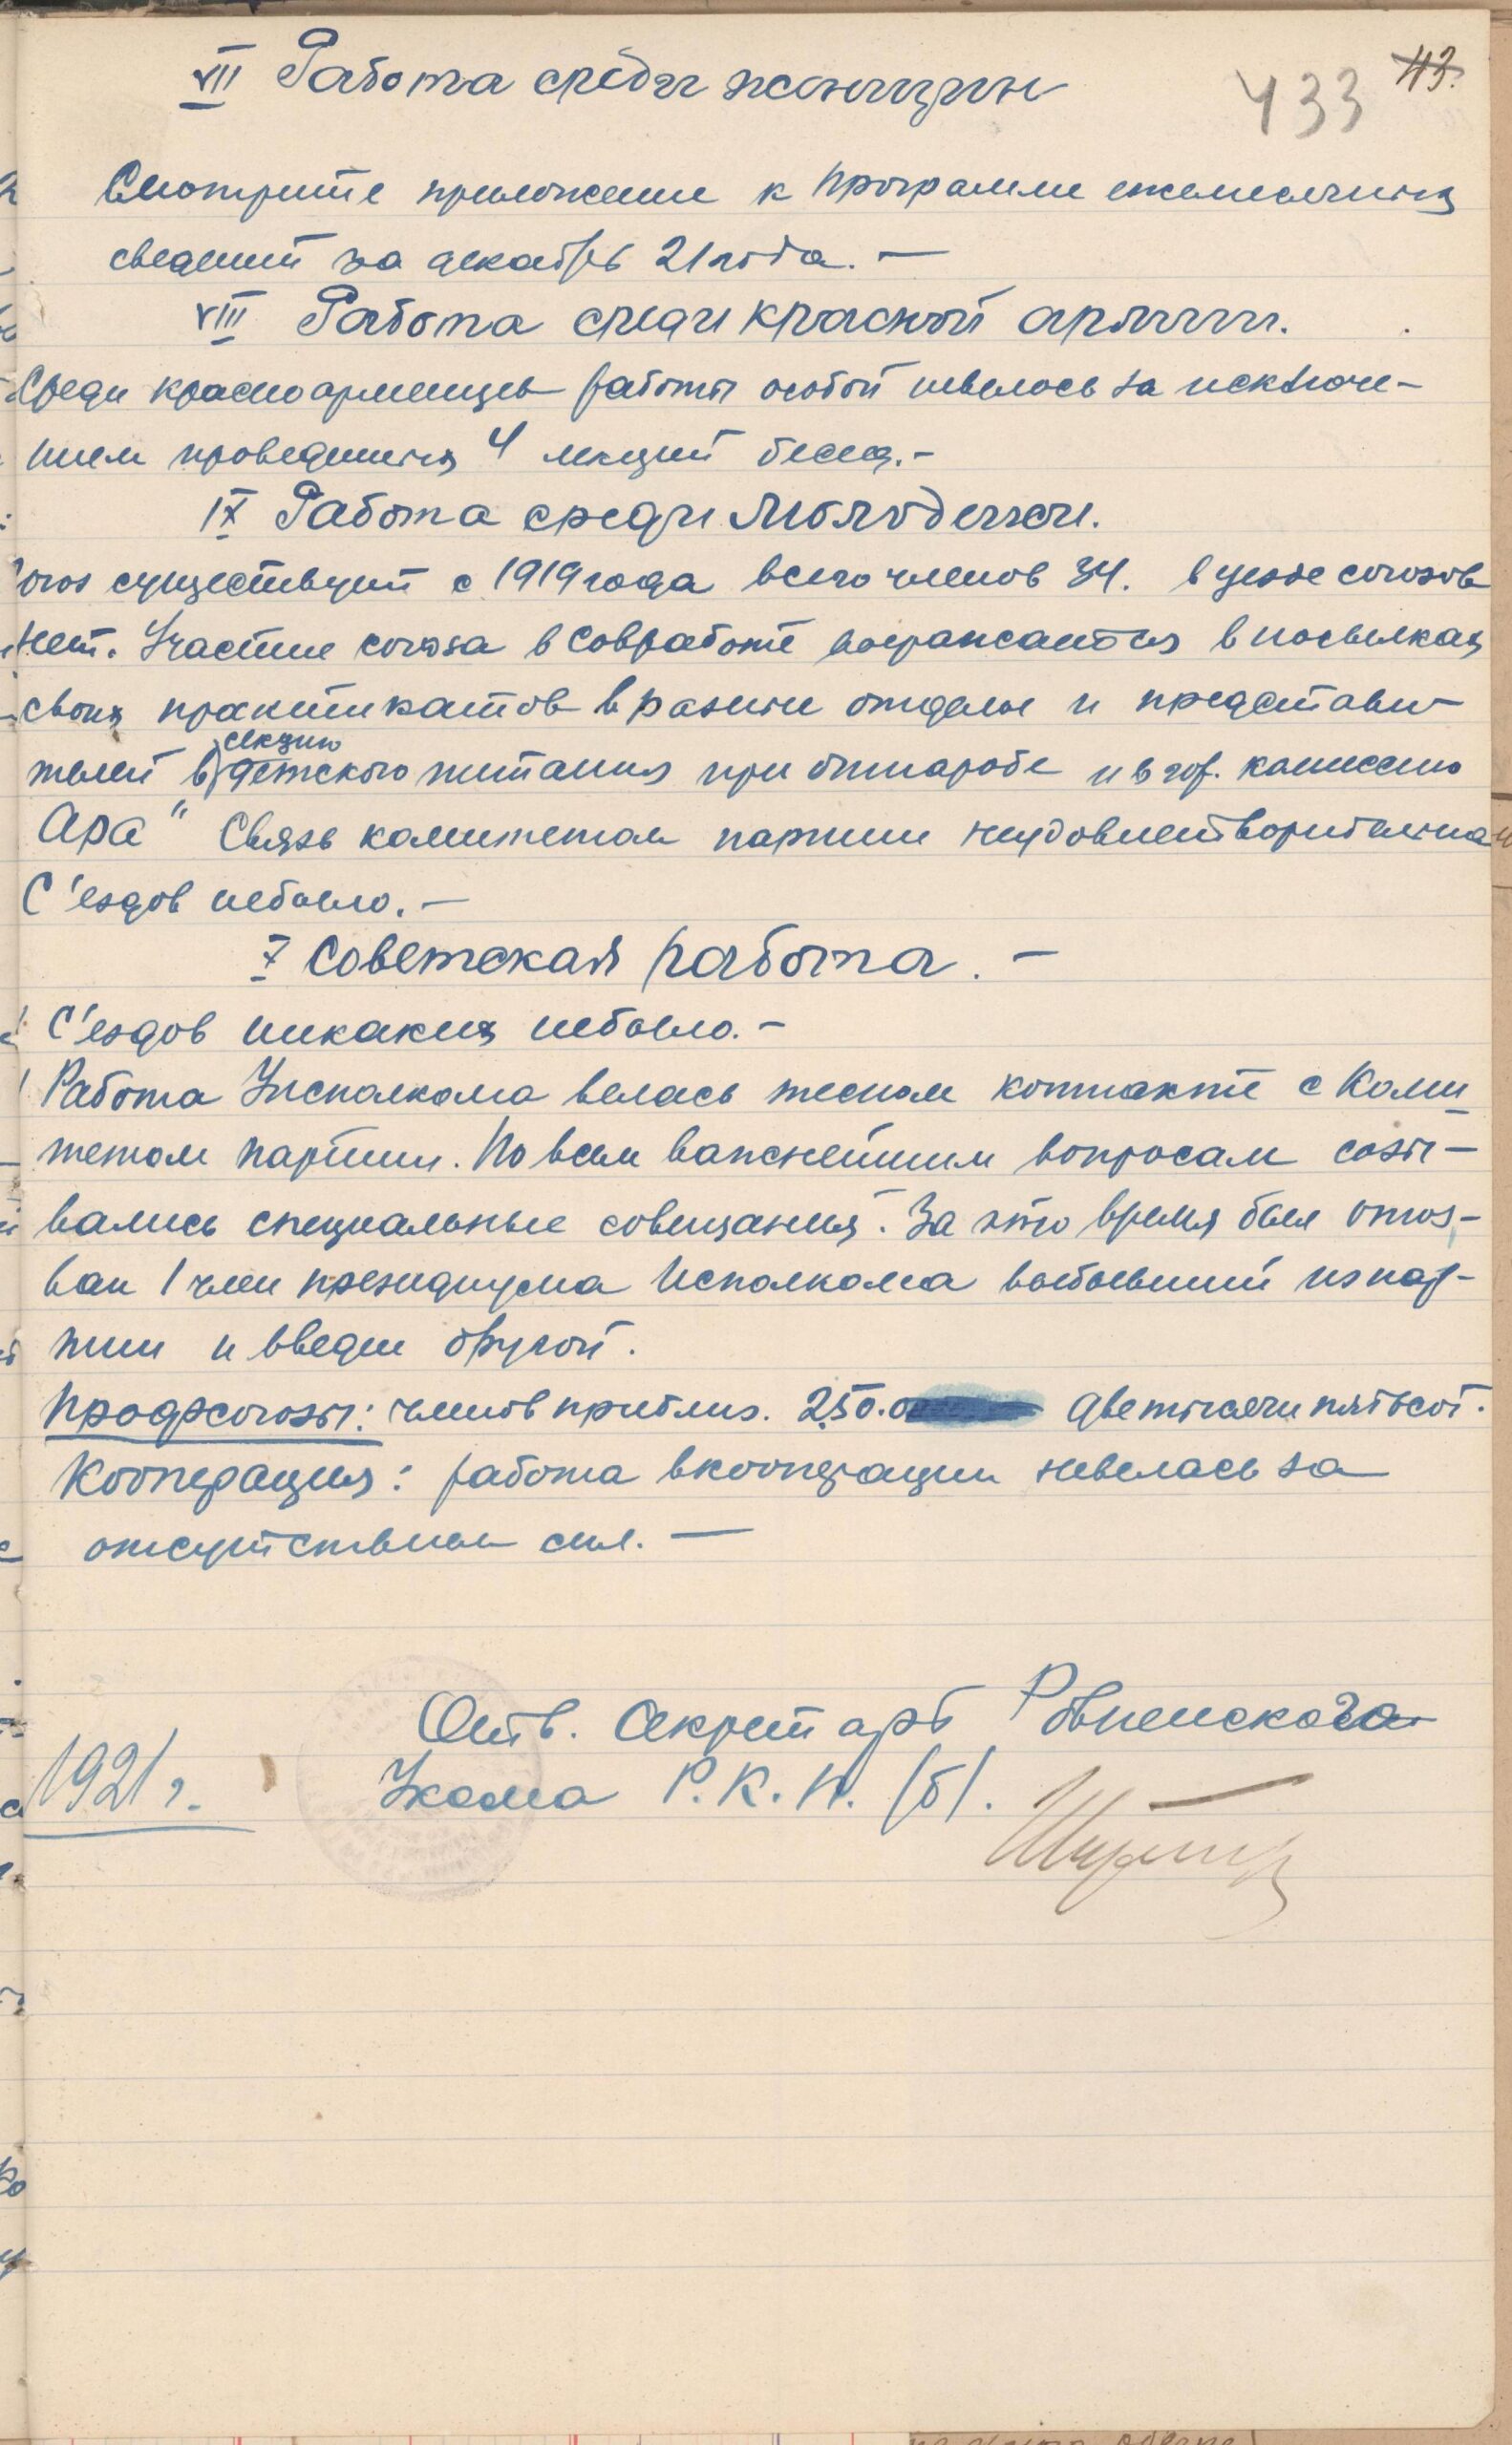 VII Работа среди женщин
433 43.
Смотрите приложение к программе ежемесячных
сведений за декабрь 21 года. —
VIII Работа среди красной армии.
Среди красноармейцев работы особой невелось за исключе-
нием проведенных 4 лекций бесед. -
IX Работа среди Молодежи.
Союз существует с 1919 года всего членов 34. в уезде союзов
нет. Участие союза в Совработе выражается в посылках
своих практикатов в разные отделы и представи-
секцию
телей в детского питания при отнаробе и в гор. комиссию
Ара" Связь комитетом партии неудовлетворительна
С'ездов небыло. —
X Советская работа. —
С'ездов никаких небыло. -
Работа Уисполкома велась тесном контакте с Коми-
тетом партии. По всем важнейшим вопросам созы-
вались специальные совещания. За это время был отоз-
ван 1 член президиума Исполкома выбывший из пар-
тии и введен другой.
Профсоюзы: членов приблиз. 250.0 две тысячи пятьсот.
Кооперация: работа вкооперации невелась за
отсутствием сил. —
Отв. Секретарь Ровненского
1921 г. Укома Р.К.П. (б).